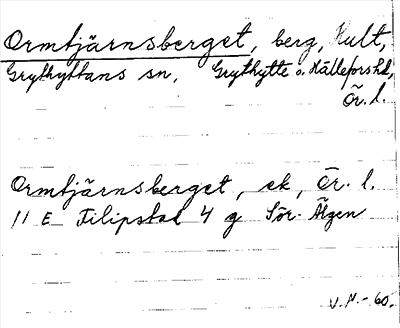 Ormtjärnsberget, berg, Kult,
Grythyttans sn, Grythytte o. Hälleforshd,
Ör. l.
Ormtjärnsberget, ek, Ör. l.
11 E Filipstad 4 g Sör. Älgen
V.M.-60.